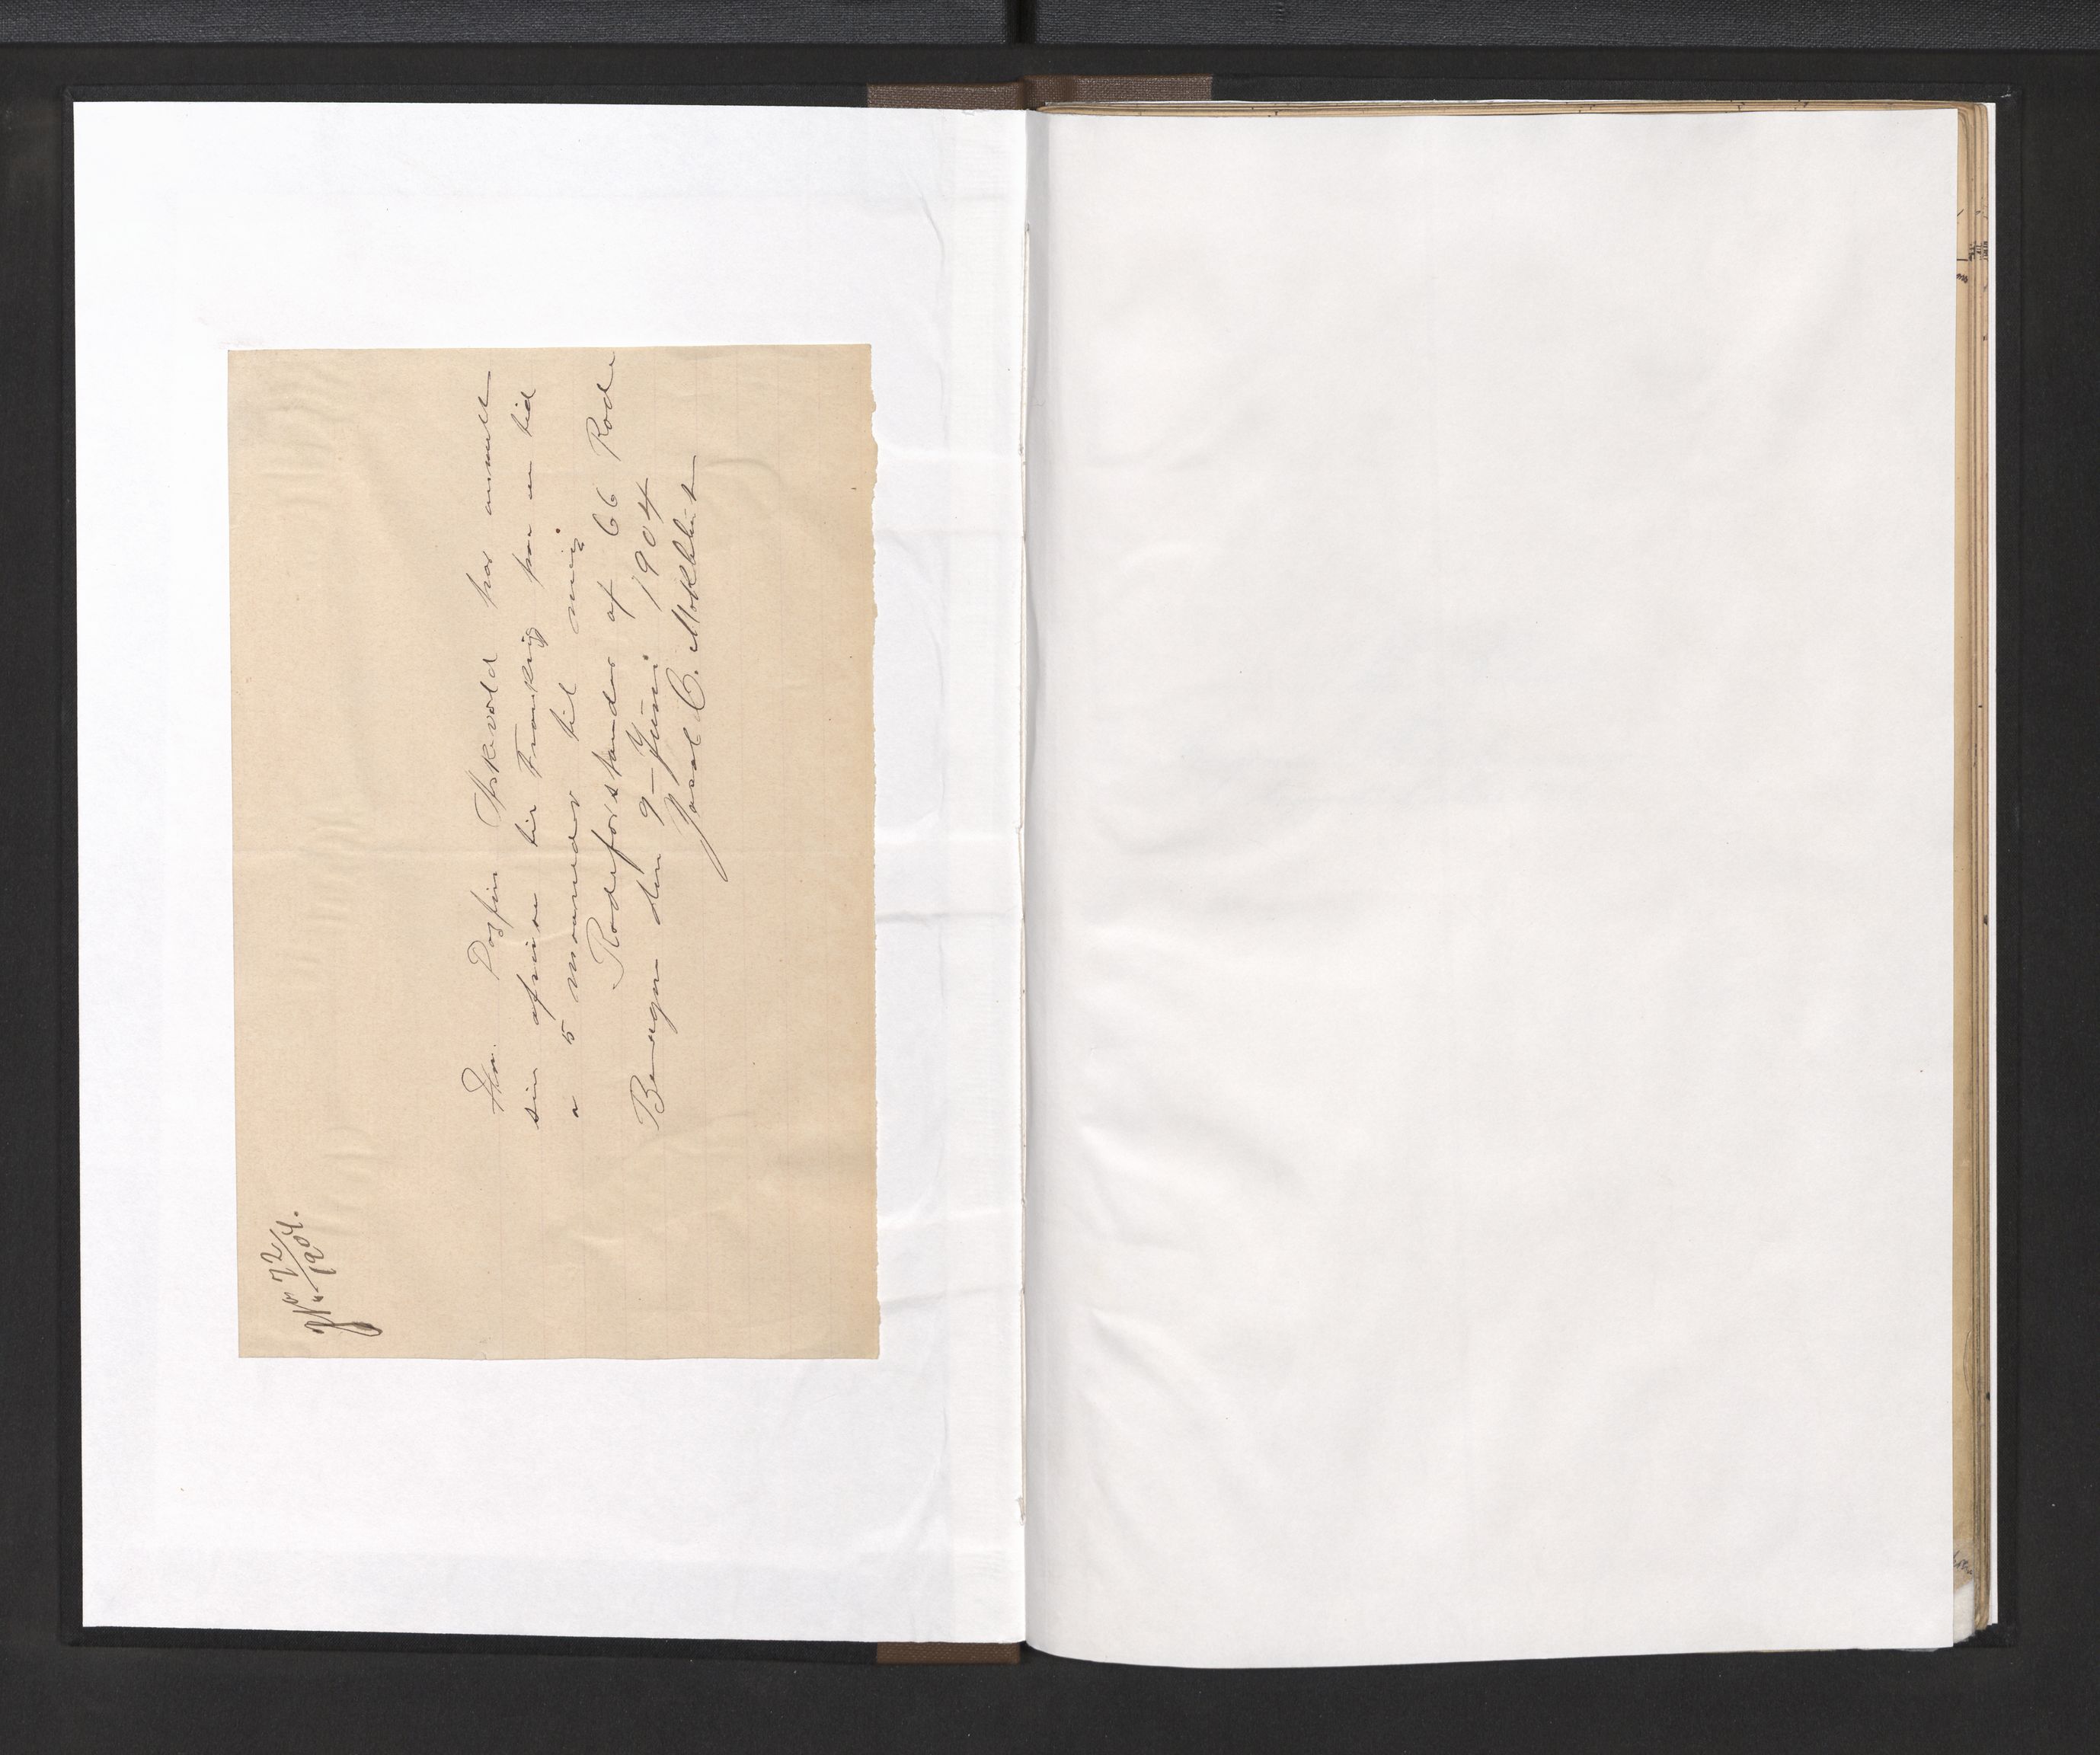 No 72/1904.
Hr. Dagfin Askevold har anmelt
sin afreise til Frankrig paa en tid
a 5 maaneder til mig.
Rodeforstander af 66 Rode
Bergen den 9 Juni 1904
C. Mokkleist